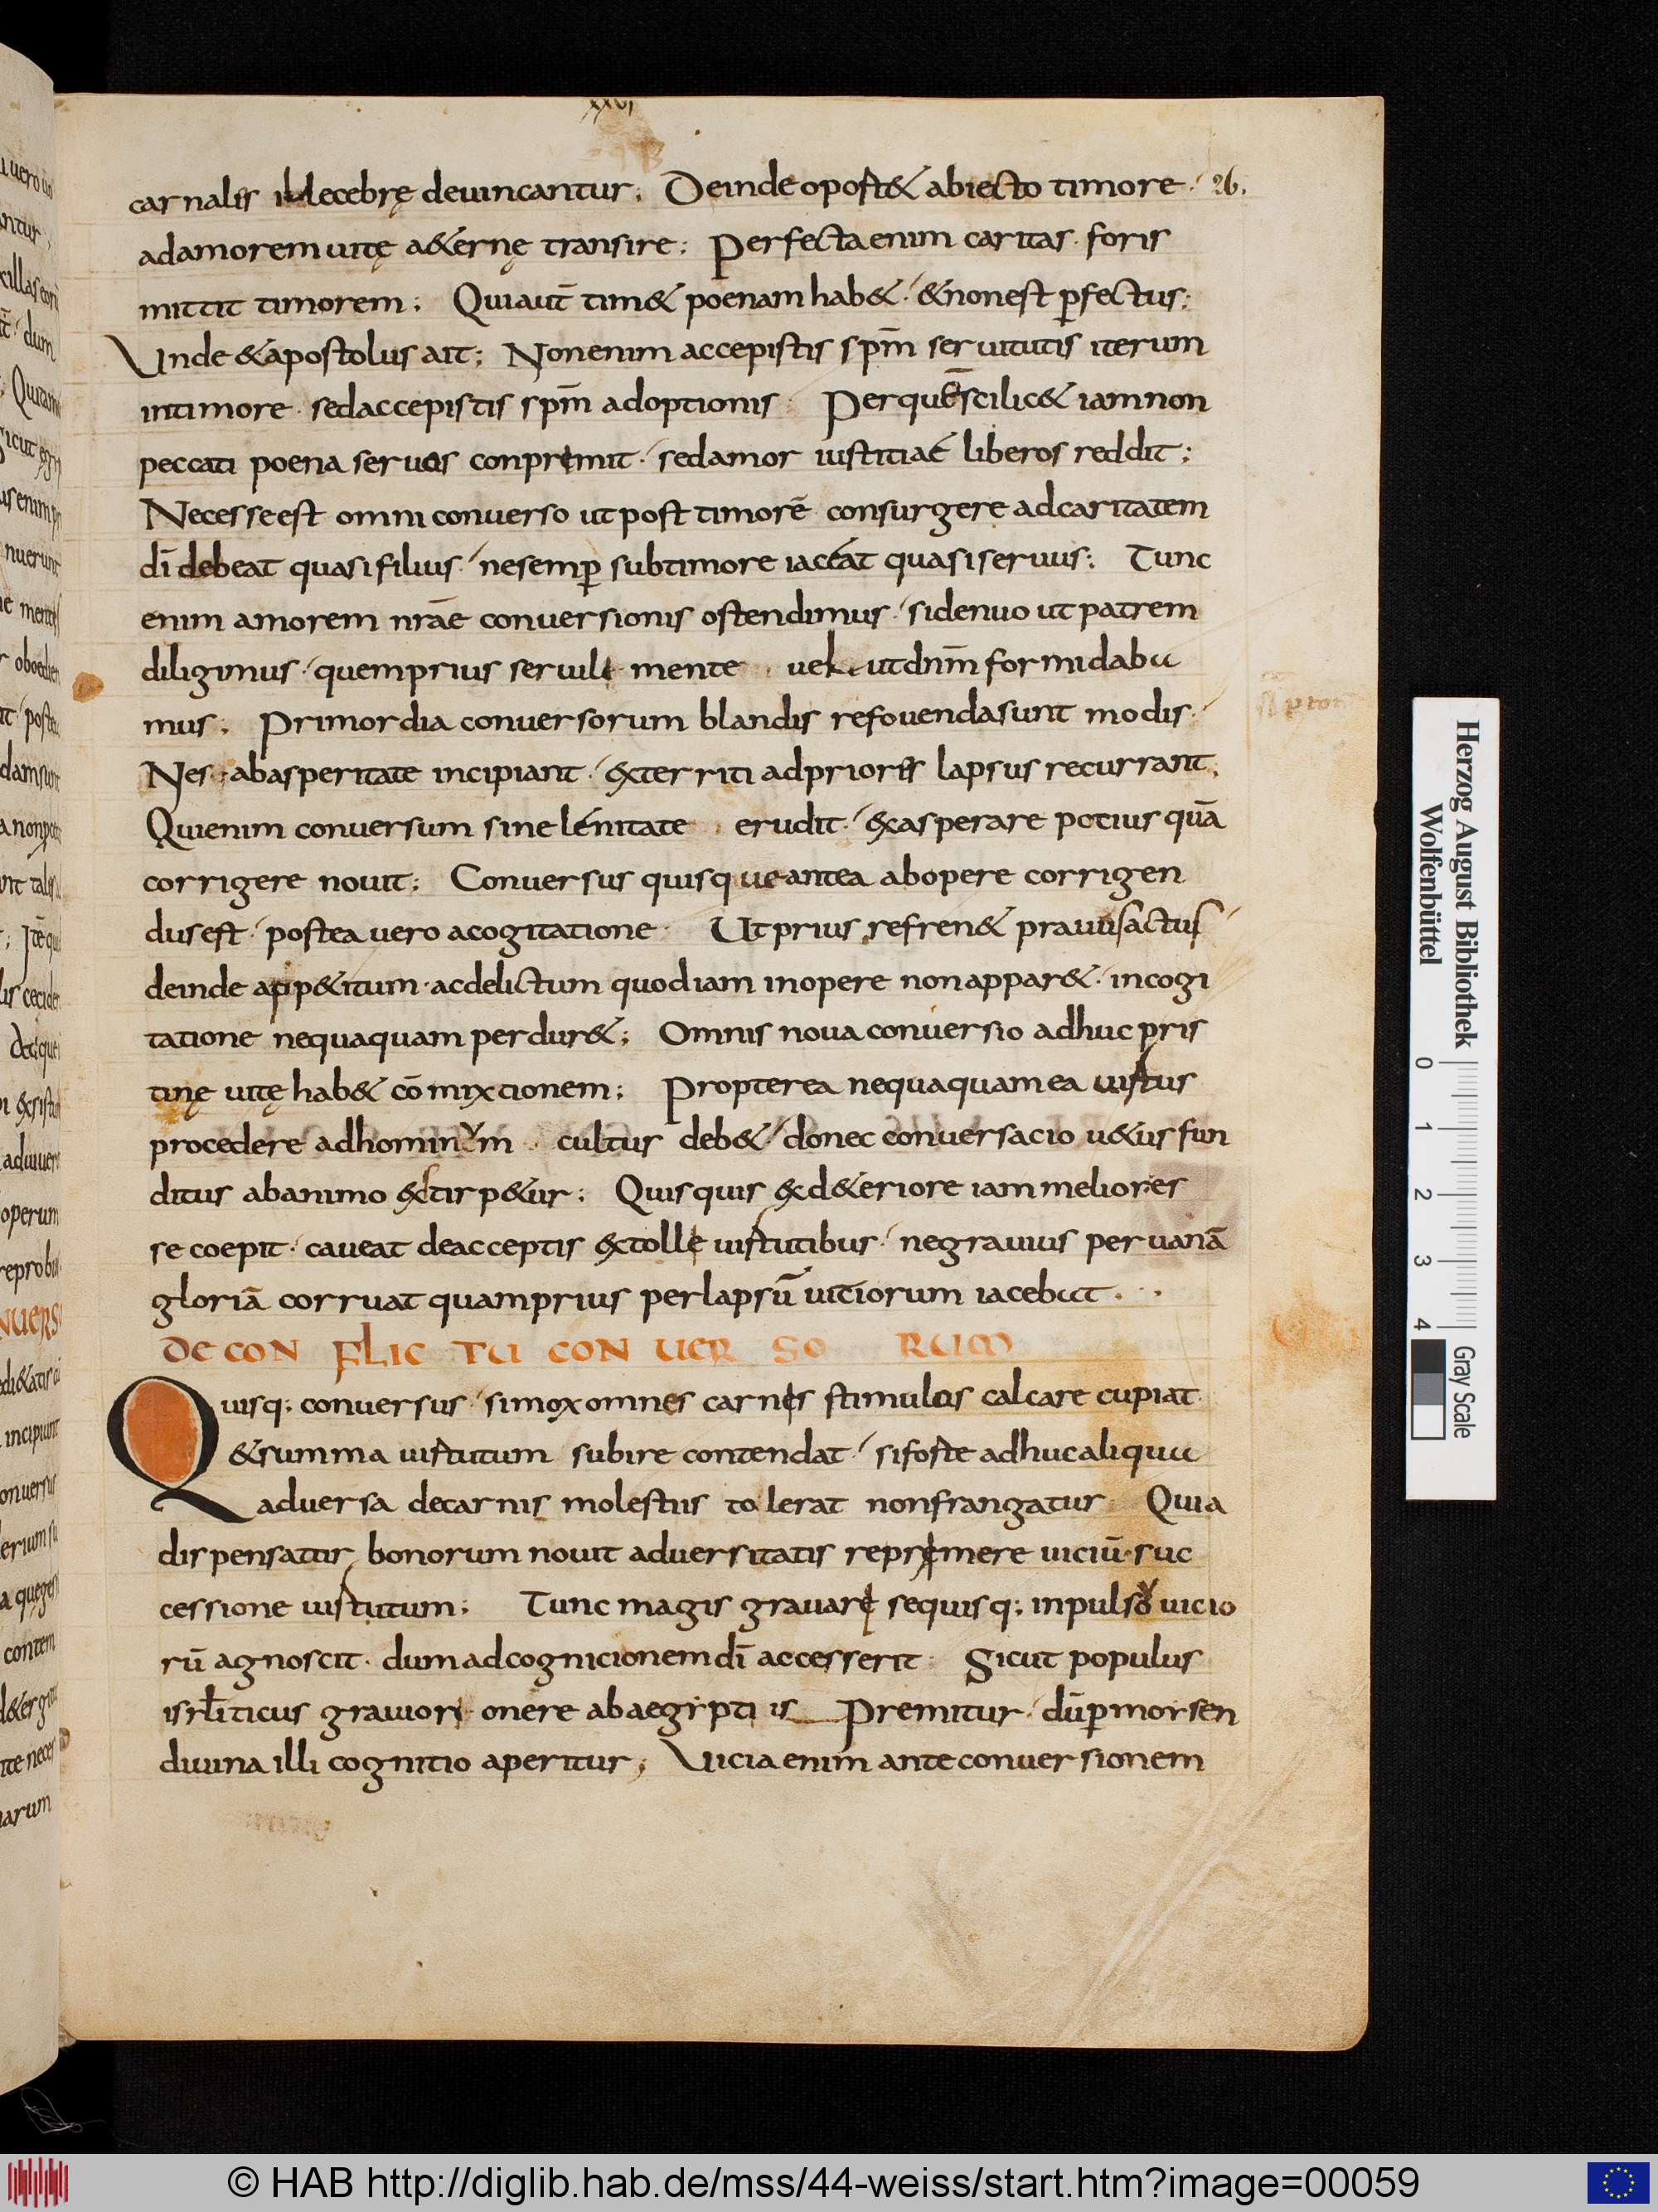 xxvi
carnalis illecebrę deuincantur; Deinde oportet abiecto timore · 26.
ad amorem uitę aeternę transire; Perfecta enim caritas · foris
mittit timorem; Qui aut̄ tim& poenam hab& · & non est p̱fectus;
Unde & apostolus ait; Non enim accepistis sp̄m seruitutis iterum
in timore · sed accepistis sp̄m adoptionis Per quē scilic& iam non
peccati poena seruos conpremit · sed amor iustitiae liberos reddit;
Necesse est omni conuerso ut post timorē consurgere ad caritatem
dī debeat quasi filius · ne semp̱ sub timore iaceat quasi seruus; Tunc
enim amorem nr̄ae conuersionis ostendimus · si denuo ut patrem
diligimus · quem prius seruile mente uel ut dn̄m formidaba
mus; Primordia conuersorum blandis refouenda sunt modis ·
Nes ab asperitate incipiant · exterriti ad prioris lapsus recurrant;
Qui enim conuersum sine lenitate erudit · exasperare potius quā
corrigere nouit; Conuersus quisque antea ab opere corrigen
dus est · postea uero a cogitatione · Ut prius refren& prauus actus
deinde app&itum · ac delictum quod iam in opere non appar& · in cogi
tatione nequaquam perdur&; Omnis noua conuersio adhuc pris
tinę uitę hab& cōmixtionem; Propterea nequaquam ea uirtus
procedere ad hominum cultus deb& · donec conuersacio u&us fun
ditus ab animo extirp&ur; Quisquis ex d&eriore iam meliores
se coepit · caueat de acceptis extolle uirtutibus · ne grauius per uanā
gloriā corruat quam prius per lapsū uiciorum iacebat ·
DE CON FLIC TU CON UER SO RUM
Quisq; conuersus · si mox omnes carnes stimulos calcare cupiat
& summa uirtutum subire contendat · si forte adhuc aliqua
aduersa de carnis molestiis tolerat non frangatur Quia
dispensatur bonorum nouit aduersitatis repremere uiciū · suc
cessione uirtutum; Tunc magis grauare se quisq; inpulso uicio
rū agnoscit · dum ad cognicionem dī accesserit · Sicut populus
isrl̄iticus grauiori onere ab aegiptiis Premitur · dū p̱ morsen
diuina illi cognitio aperitur; Uicia enim ante conuersionem
Herzog August Bibliothek
Wolfenbüttel
0 1 2 3 4
Gray Scale
© HAB http://diglib.hab.de/mss/44-weiss/start.htm?image=00059